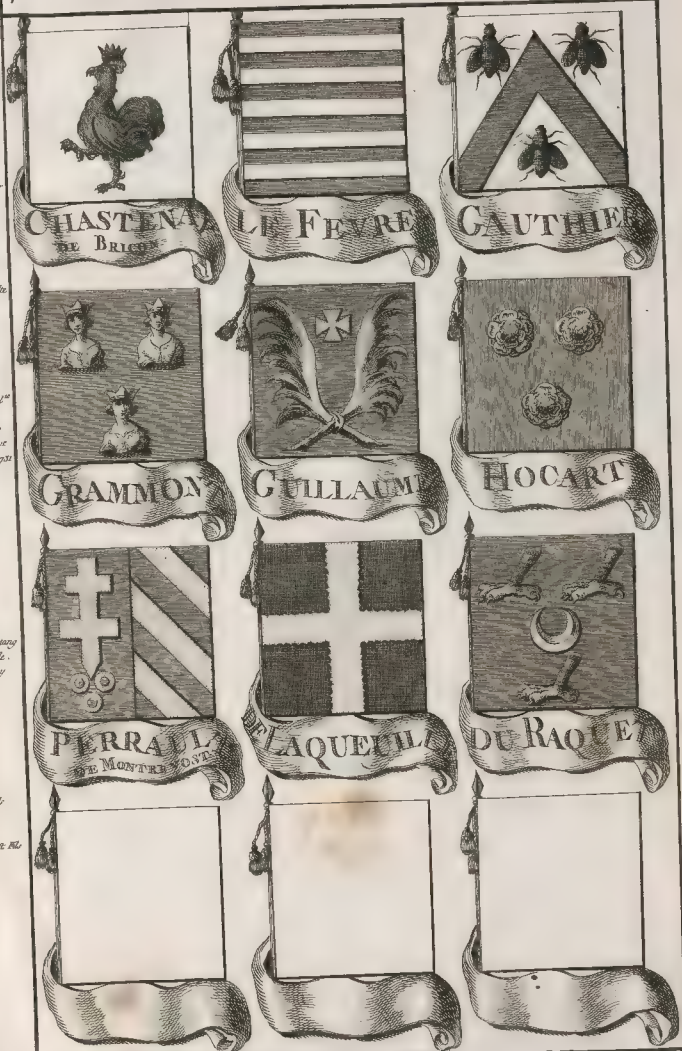 CHASTENAY
DE BRICON
LE FEVRE
GAUTHIER
GRAMMONT
GUILLAUME
HOCART
PERRAULT
DE MONTREVOST
DE LAQUEUILLE
DU RAQUET